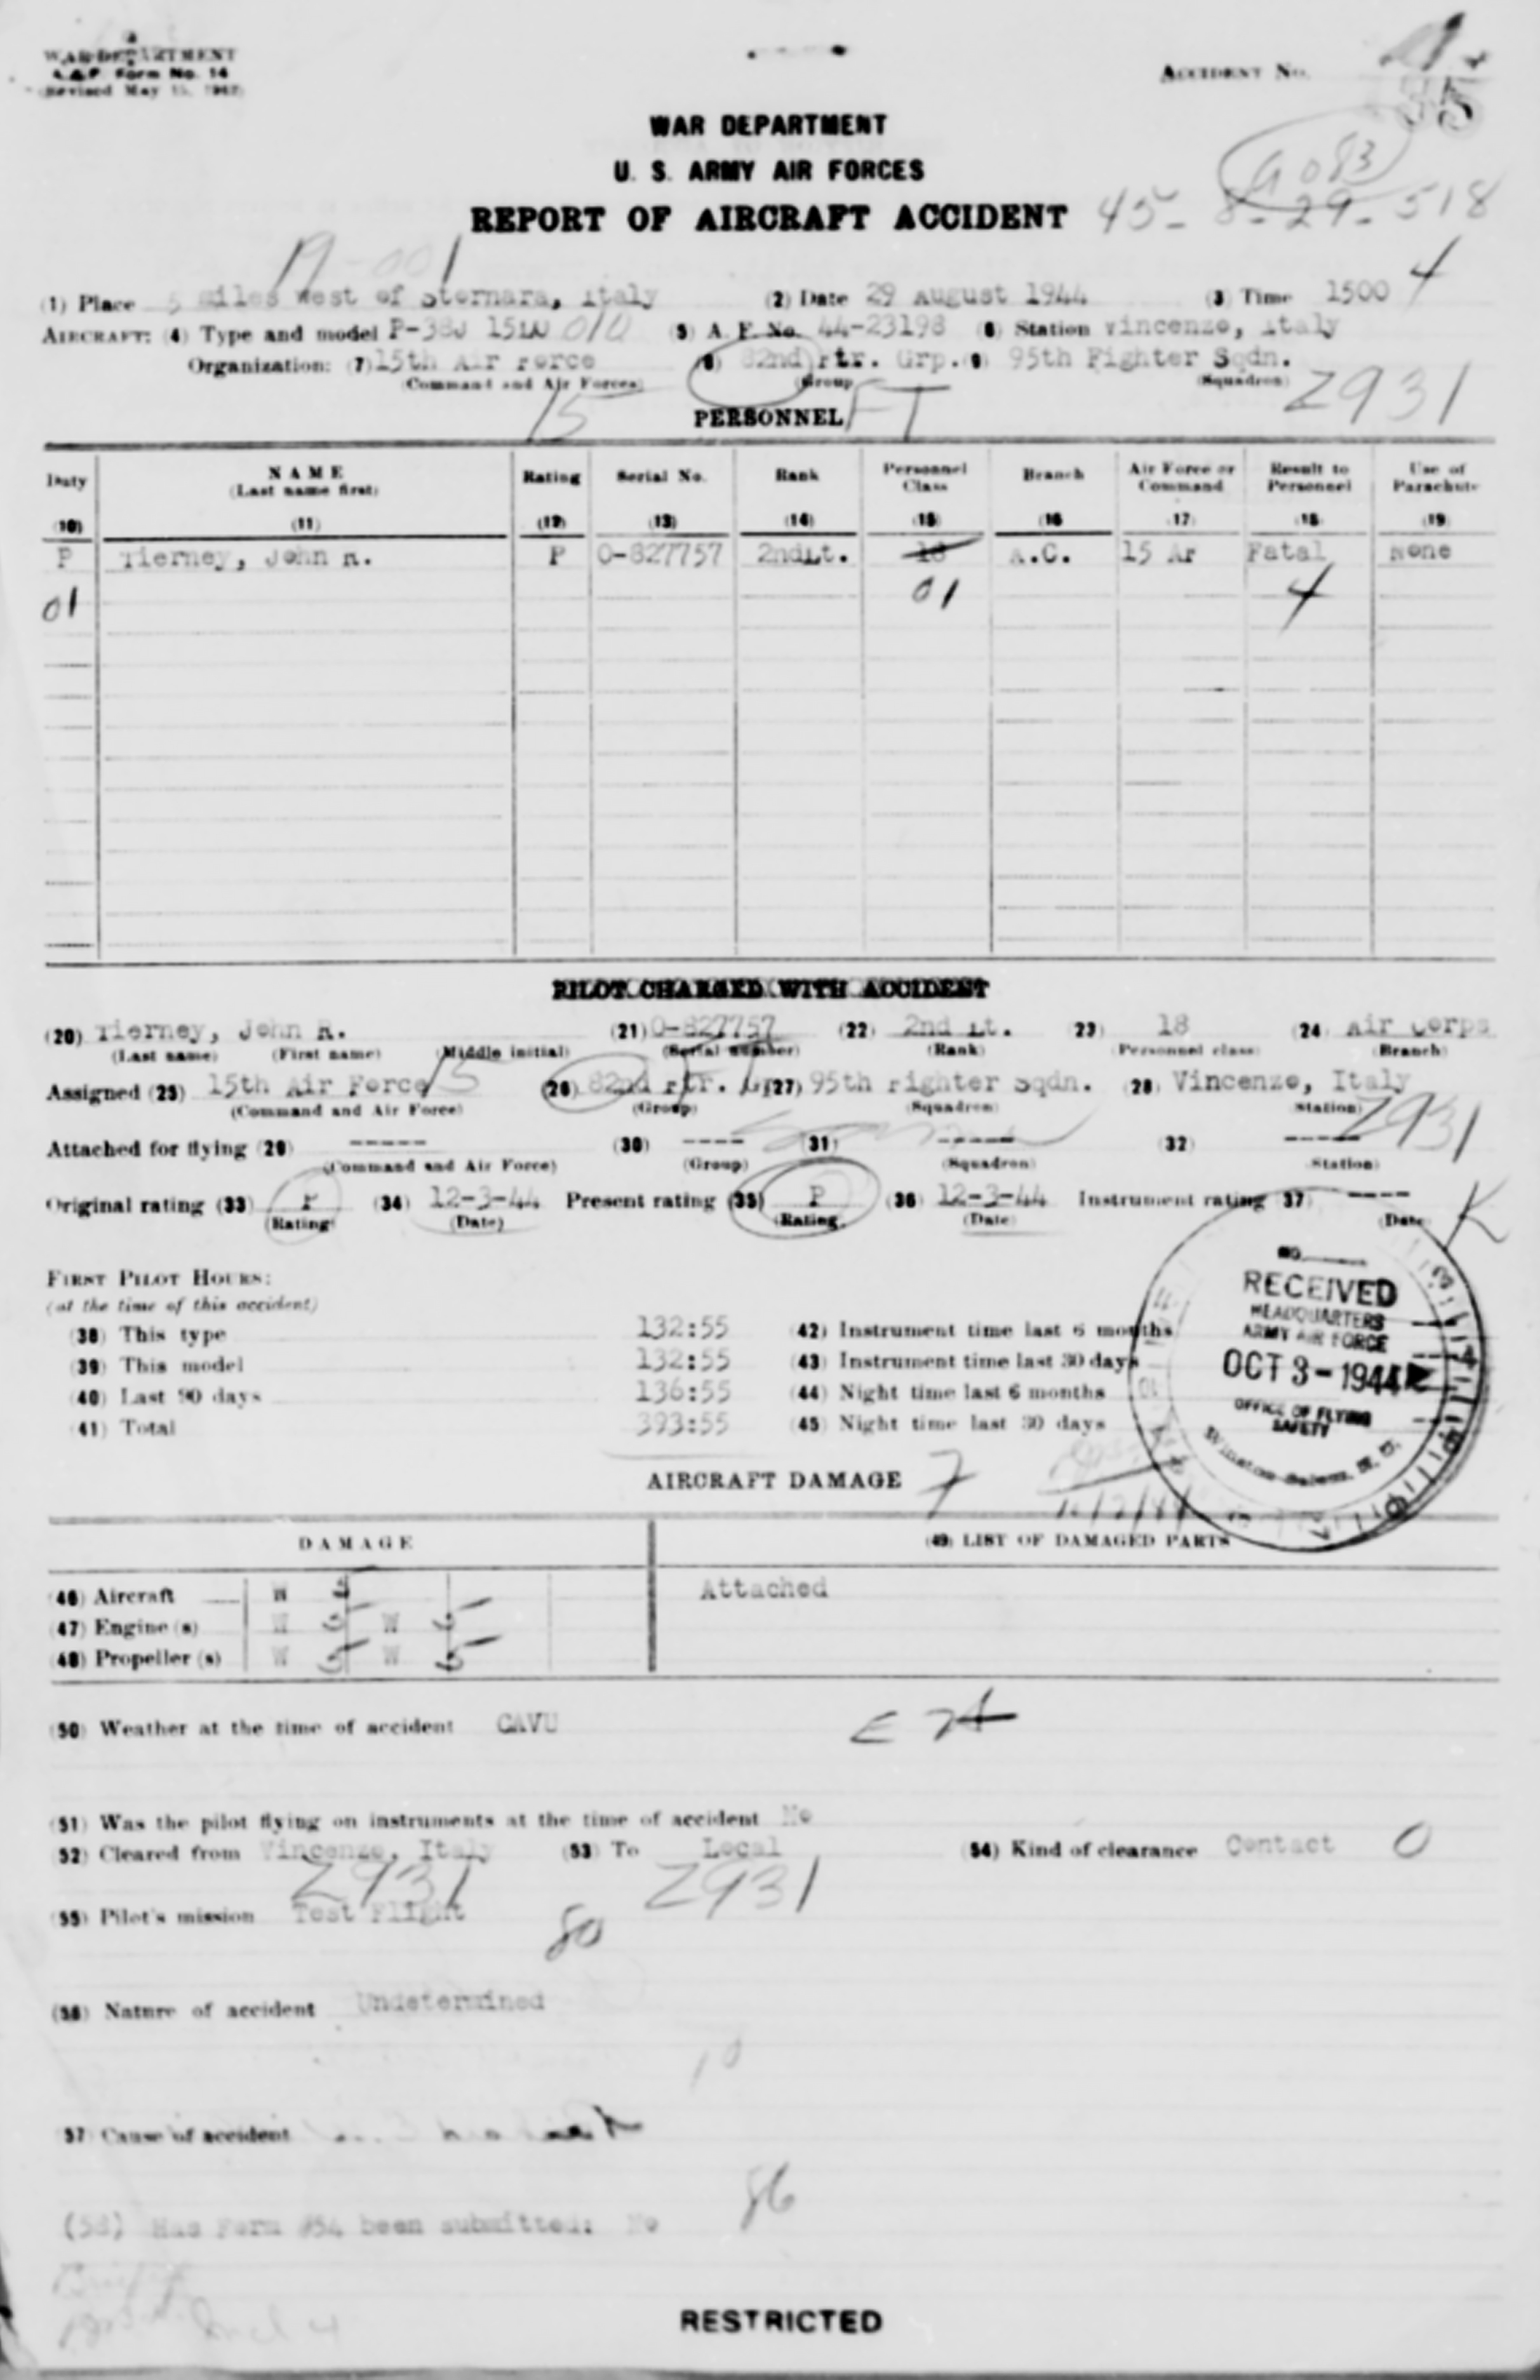 WAR DEPARTMENT
A.A.F. Form No. 14
(Revised May 15, 1942)
ACCIDENT No.
WAR DEPARTMENT
U. S. ARMY AIR FORCES
REPORT OF AIRCRAFT ACCIDENT 45-8-29-518
(1) Place 5 miles West of Sternara, Italy (2) Date 29 August 1944 (3) Time 1500 4
AIRCRAFT: (4) Type and model P-38J 15LO 010 (5) A. F. No. 44-23198 (6) Station Vincenzo, Italy
Organization: (7) 15th Air Force (8) 82nd Ftr. Grp. (9) 95th Fighter Sqdn.
(Command and Air Forces) (Group) (Squadron)
15 PERSONNEL FT Z931
Duty NAME Rating Serial No. Rank Personnel Class Branch Air Force or Command Result to Personnel Use of Parachute
(Last name first)
(10) (11) (12) (13) (14) (15) (16) (17) (18) (19)
P Tierney, John R. P O-827757 2ndLt. 18 A.C. 15 AF Fatal None
01 01 4
PILOT CHARGED WITH ACCIDENT
(20) Tierney, John R. (21) O-827757 (22) 2nd Lt. (23) 18 (24) Air Corps
(Last name) (First name) (Middle initial) (Serial number) (Rank) (Personnel class) (Branch)
Assigned (25) 15th Air Force 15 (26) 82nd Ftr. (27) 95th Fighter Sqdn. (28) Vincenzo, Italy
(Command and Air Force) (Group) (Squadron) (Station) Z931
Attached for flying (29) ----- (30) ---- (31) ----- (32) -----
(Command and Air Force) (Group) (Squadron) (Station)
Original rating (33) P (34) 12-3-44 Present rating (35) P (36) 12-3-44 Instrument rating (37) ---- K
(Rating) (Date) (Rating) (Date) (Date)
FIRST PILOT HOURS:
(at the time of this accident)
(38) This type 132:55 (42) Instrument time last 6 months
(39) This model 132:55 (43) Instrument time last 30 days
(40) Last 90 days 136:55 (44) Night time last 6 months
(41) Total 393:55 (45) Night time last 30 days
RECEIVED
HEADQUARTERS
ARMY AIR FORCE
OCT 3-1944
OFFICE OF FLYING
SAFETY
Winston Salem, N. C.
AIRCRAFT DAMAGE 7
DAMAGE (49) LIST OF DAMAGED PARTS
(46) Aircraft W 5 Attached
(47) Engine (s) W 5 W 5
(48) Propeller (s) W 5 W 5
(50) Weather at the time of accident CAVU
(51) Was the pilot flying on instruments at the time of accident No
(52) Cleared from Vincenzo, Italy (53) To Local (54) Kind of clearance Contact 0
Z931 Z931
(55) Pilot's mission Test Flight
80
(56) Nature of accident Undetermined
10
(57) Cause of accident
86
(58) Has Form #54 been submitted: No
RESTRICTED